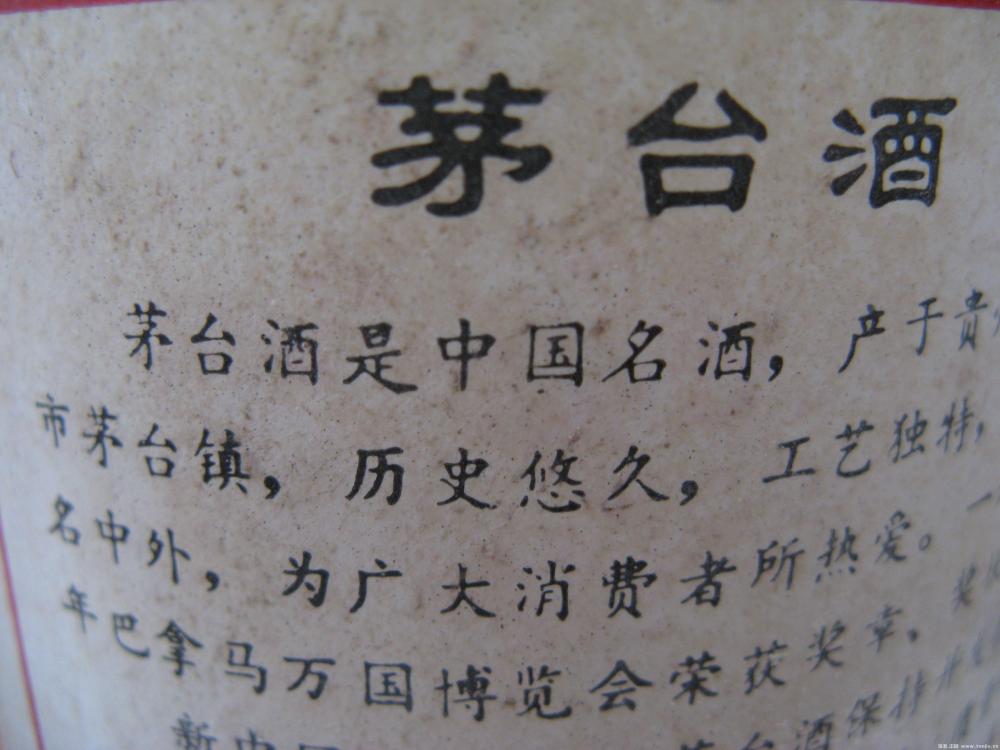 茅台酒
茅台酒是中国名酒，产于贵
市茅台镇，历史悠久，工艺独特，
名中外，为广大消费者所热爱。一
年巴拿马万国博览会荣获奖章、奖
新中国 茅台酒保持并发